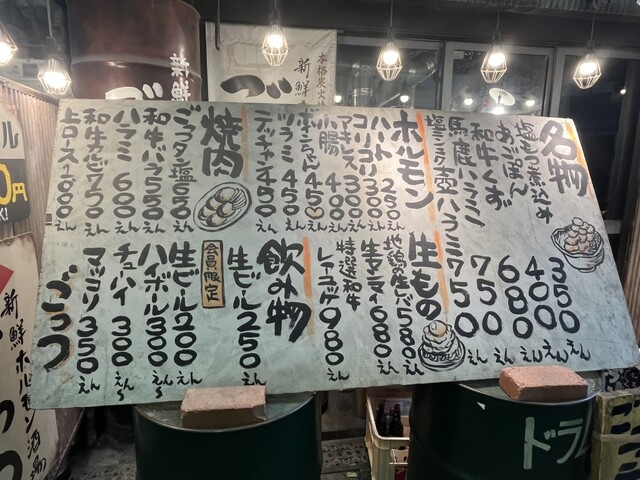 名物
塩もつ煮込み 350えん
あごぽん 400えん
和牛くず 680えん
馬鹿ハラミ 750えん
塩ニンニク壺ハラミ 750えん
ホルモン
ハート 250えん
コリコリ 300えん
アキレス 300えん
小腸 400えん
450えん
ツラミ 450えん
テッチャン 450えん
生もの
地鶏の生 580えん
生センマイ 680えん
特選和牛
980えん
焼肉
ごっつタン塩 650えん
和牛バラ 550えん
ハラミ 600えん
和牛カルビ 750えん
上ロース 1000えん
飲み物
生ビール 250えん
会員限定
生ビール 200えん
ハイボール 300えん〜
チューハイ 300えん〜
マッコリ 350えん
ごっつ
本格炭火
新鮮
新鮮
新鮮ホルモン酒場
ドラ